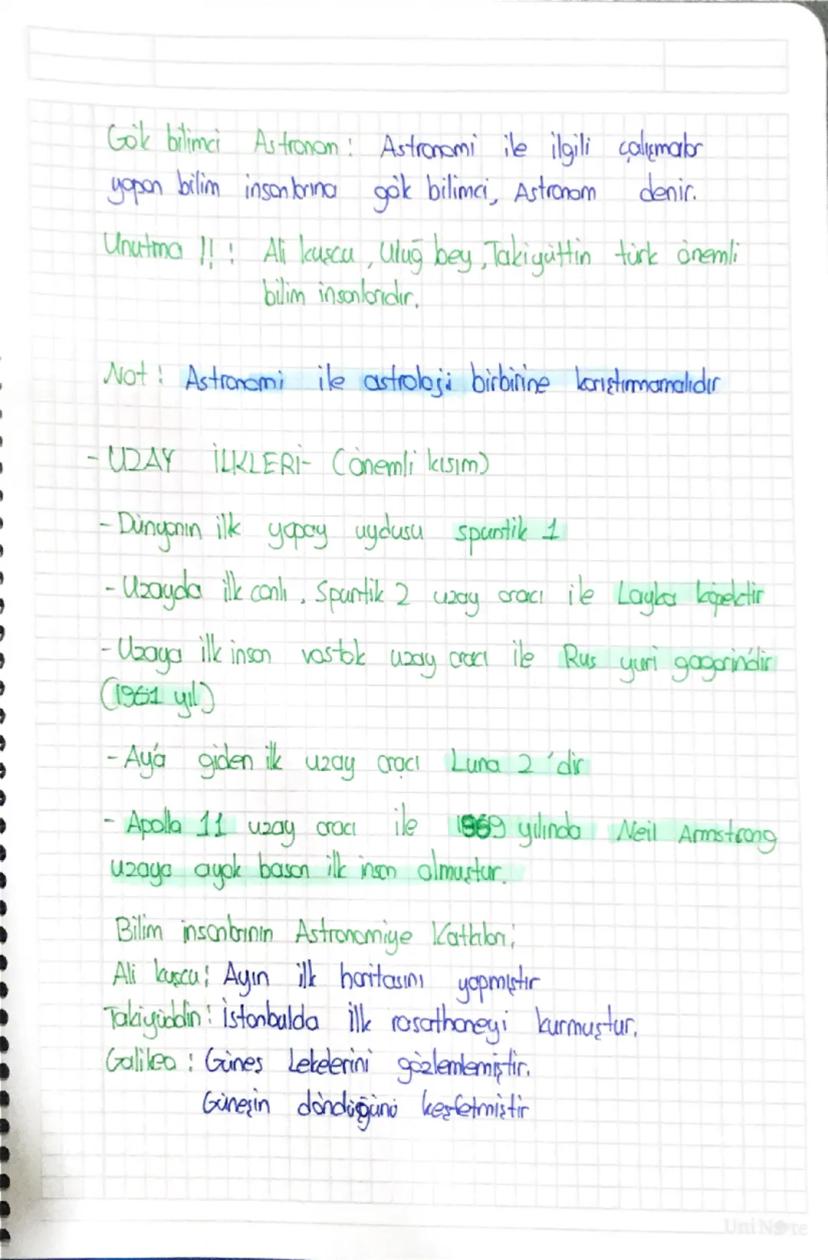 Gök bilimci Astronom: Astronomi ile ilgili çalışmalar
yapan bilim insanlarına gök bilimci, Astronom denir.
Unutma !! : Ali kuşcu, Uluğ bey, Takiyüttin türk önemli
bilim insanlarıdır.
Not: Astronomi ile astroloji birbirine karıştırmamalıdır
- UZAY İLKLERİ- (önemli kısım)
- Dünyanın ilk yapay uydusu spuntik 1
- Uzayda ilk canlı, Spuntik 2 uzay aracı ile Layka köpektir
- Uzaya ilk insan vostok uzay aracı ile Rus yuri gagarindir
(1961 yıl)
- Ay'a giden ilk uzay aracı Luna 2 'dir
- Apollo 11 uzay aracı ile 1969 yılında Neil Armstrong
uzaya ayak basan ilk insan olmuştur.
Bilim insanlarının Astronomiye Katkıları;
Ali kuşcu; Ayın ilk haritasını yapmıştır
Takiyüddin: İstanbulda ilk rasathaneyi kurmuştur.
Galileo: Güneş Lekelerini gözlemlemiştir.
Güneşin döndüğünü keşfetmiştir
UniNote